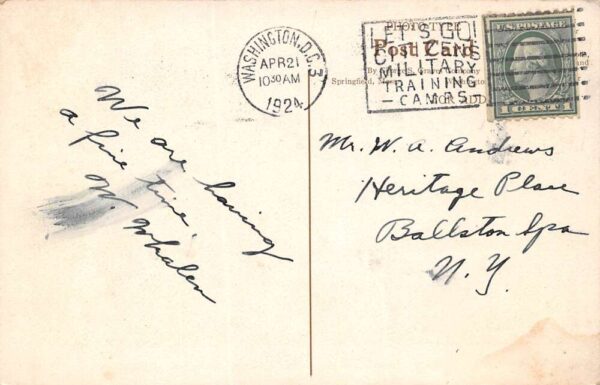 WASHINGTON, D.C. 3
APR 21
10 30 AM
1924
LET'S GO!
CITIZENS
MILITARY
TRAINING
- CAMPS -
PHOTOTYPE
Post Card
Springfield,
FOR ADD
U.S. POSTAGE
1 CENT 1
We are having
a fine time.
W. Whalen
Mr. W. A. Andrews
Heritage Place
Ballston Spa
N. Y.